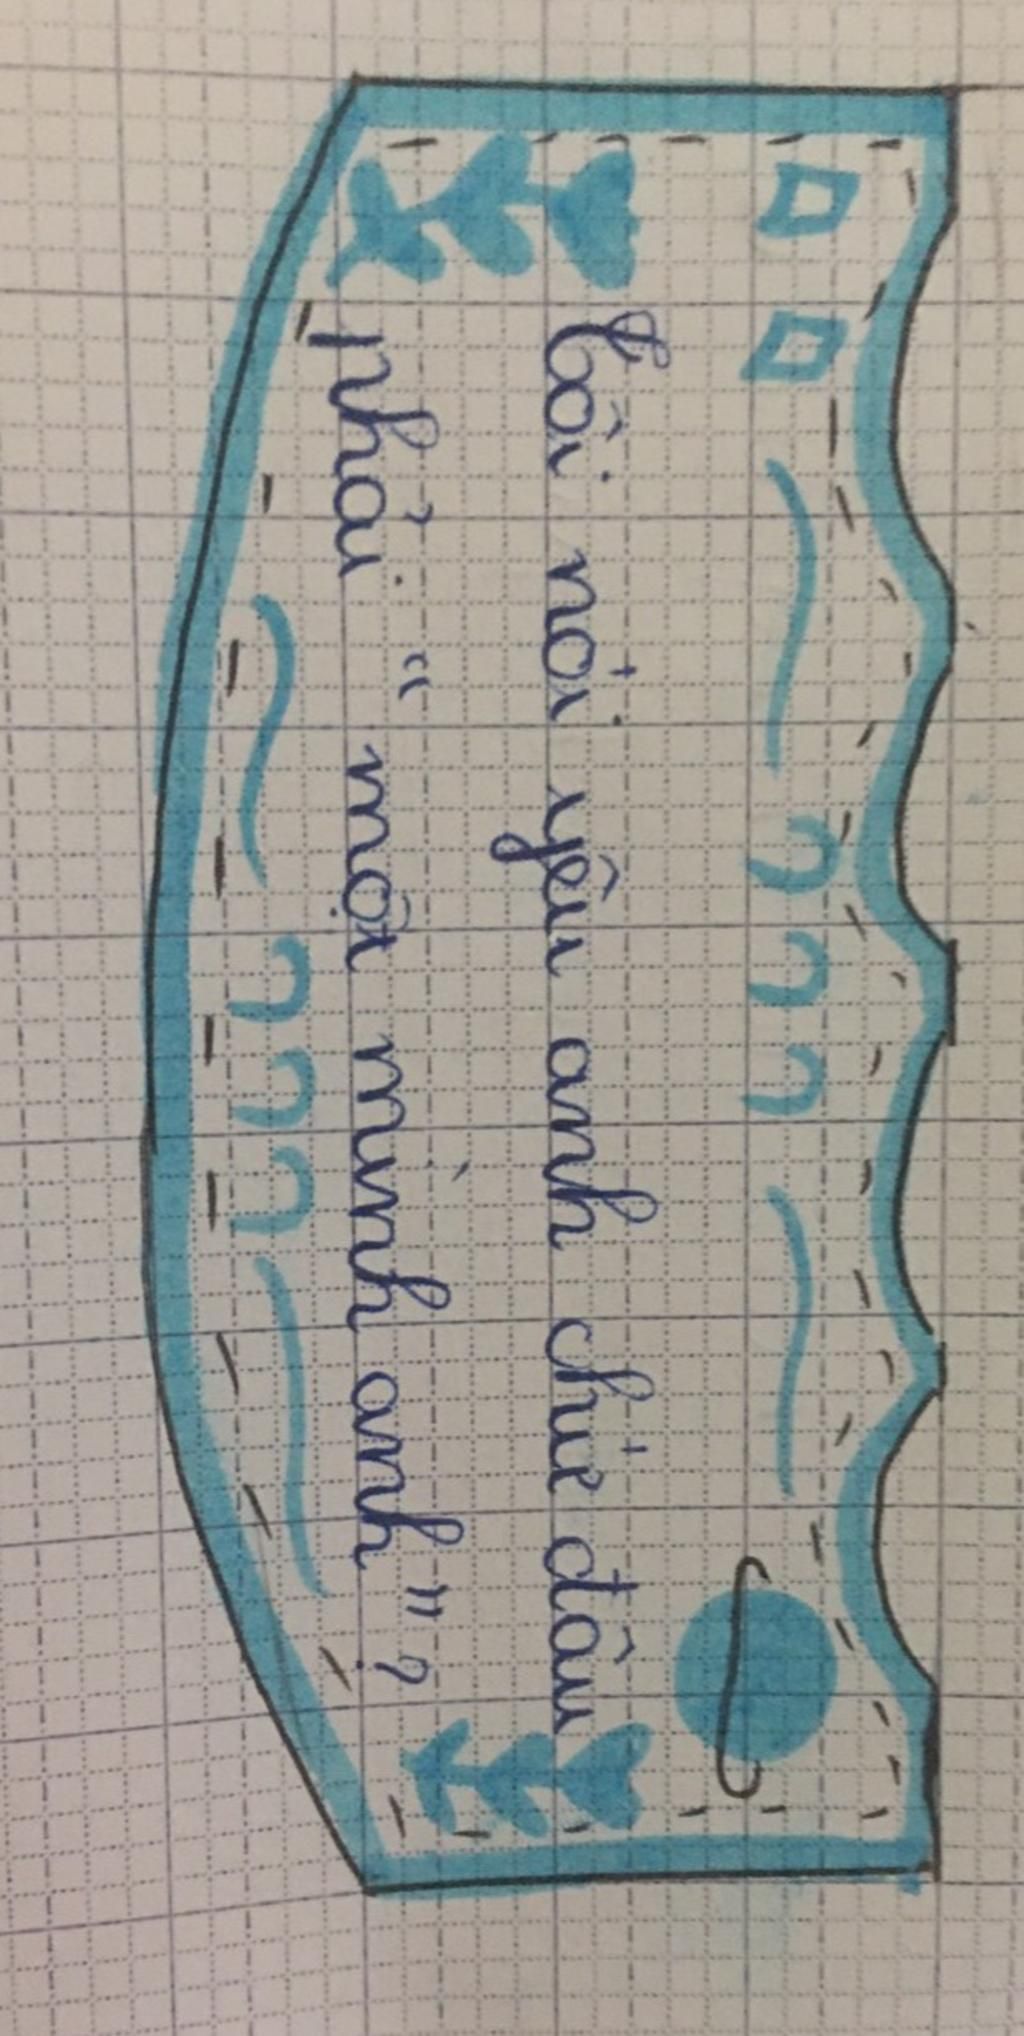 tôi nói yêu anh chứ đâu
phải " một mình anh " ?